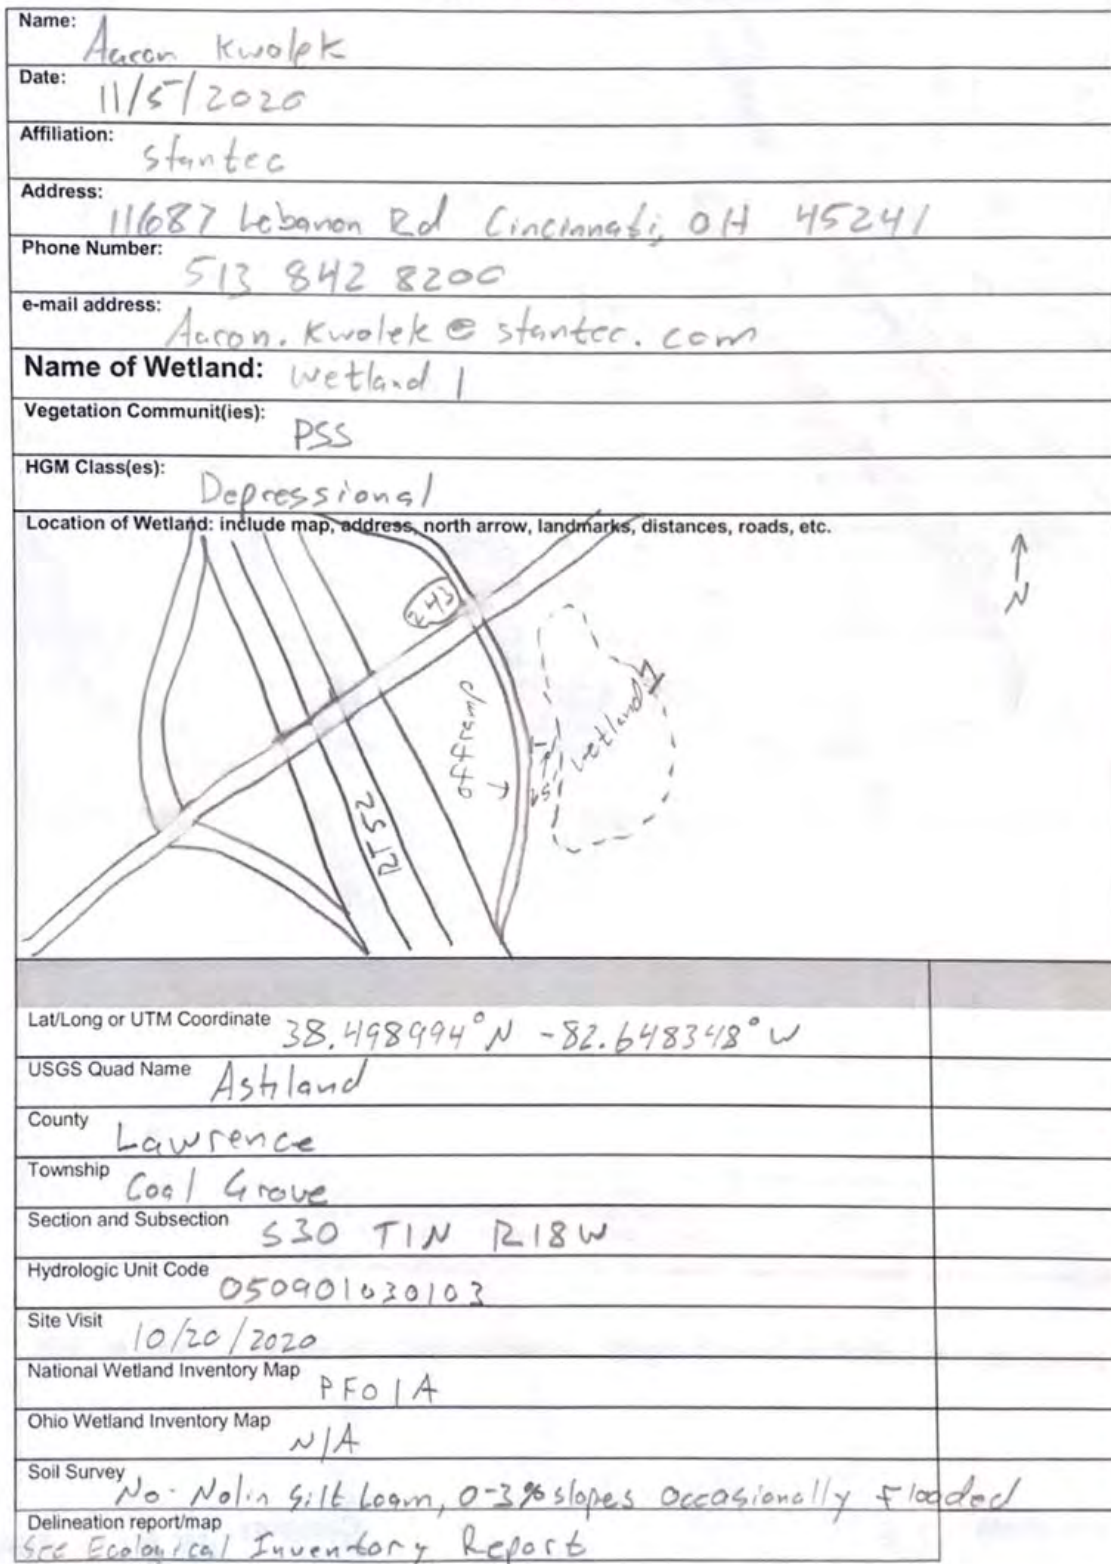 Name:
Aaron Kwolek
Date:
11/5/2020
Affiliation:
Stantec
Address:
11687 Lebanon Rd Cincinnati, OH 45241
Phone Number:
513 842 8200
e-mail address:
Aaron.Kwolek@stantec.com
Name of Wetland: Wetland 1
Vegetation Communit(ies):
PSS
HGM Class(es):
Depressional
Location of Wetland: include map, address, north arrow, landmarks, distances, roads, etc.
N
243
offramp
wetland 1
RT 52
Lat/Long or UTM Coordinate 38.498994° N -82.648348° W
USGS Quad Name Ashland
County Lawrence
Township Coal Grove
Section and Subsection S30 T1N R18W
Hydrologic Unit Code 050901030103
Site Visit 10/20/2020
National Wetland Inventory Map PFO1A
Ohio Wetland Inventory Map N/A
Soil Survey No - Nolin Silt Loam, 0-3% slopes Occasionally Flooded
Delineation report/map
See Ecological Inventory Report